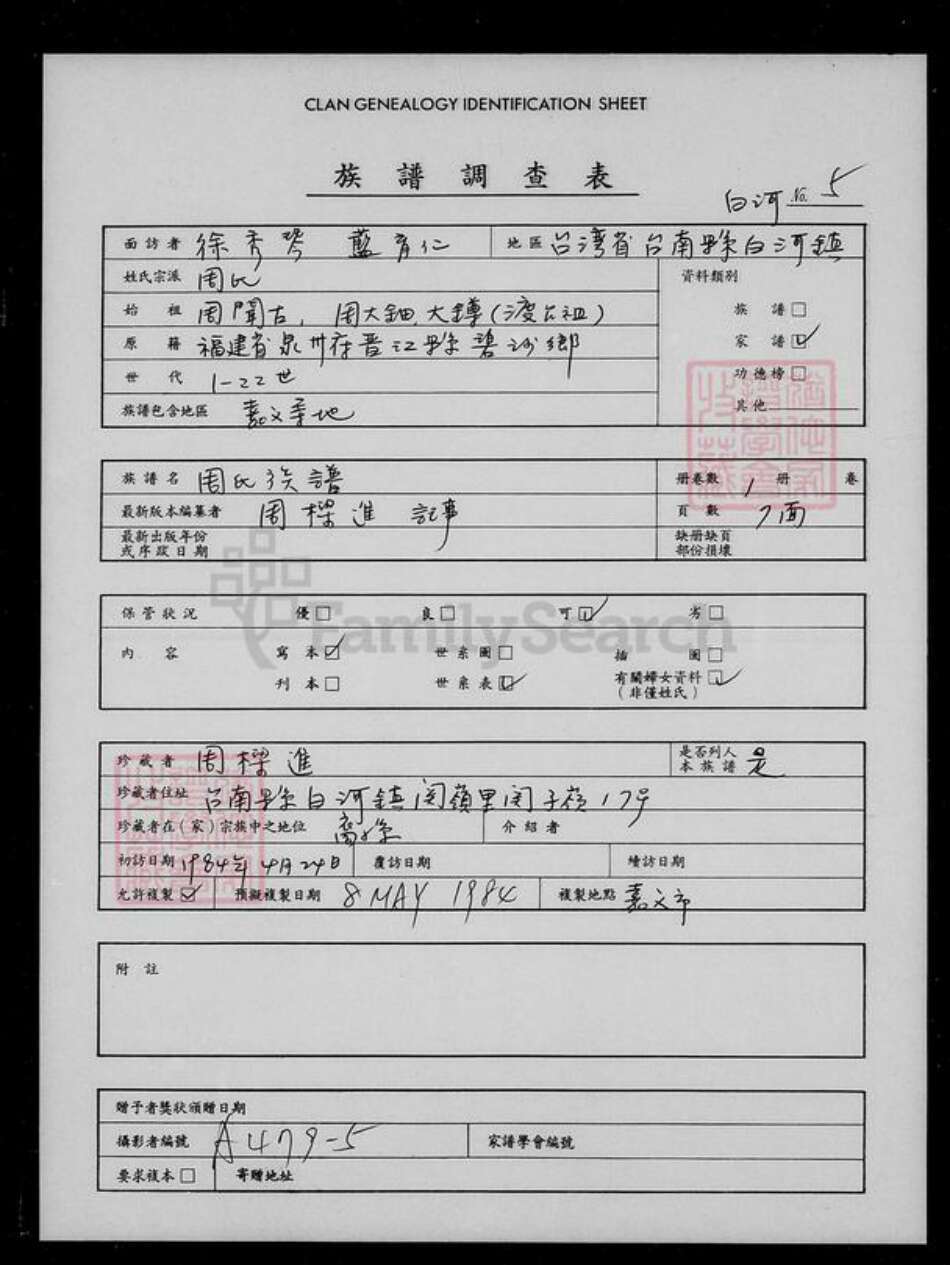 CLAN GENEALOGY IDENTIFICATION SHEET
族譜調查表
白河 No. 5
面訪者 徐秀琴 藍育仁 地區 台湾省台南縣白河鎮
姓氏宗派 周氏 資料類別
始祖 周聞古, 周大鈿, 大鐏(渡台祖) 族譜□
原籍 福建省泉州府晋江縣碧沙鄉 家譜☑
世代 1-22世 功德榜□
族譜包含地區 嘉义等地 其他
族譜名 周氏族譜 册卷數 1 册 卷
最新版本編纂者 周樑進 記事 頁數 7面
最新出版年份 缺册缺頁
或序跋日期 部份損壞
FamilySearch
保管狀況 優□ 良□ 可☑ 劣□
內容 寫本☑ 世系圖□ 插圖□
刊本□ 世系表☑ 有關婦女資料☑
(非僅姓氏)
珍藏者 周樑進 是否列入本族譜 是
珍藏者住址 台南縣白河鎮関嶺里関子嶺17号
珍藏者在(家)宗族中之地位 裔孫 介紹者
初訪日期 1984年4月24日 覆訪日期 續訪日期
允許複製☑ 預擬複製日期 8 MAY 1984 複製地點 嘉义市
附註
贈予者獎狀頒贈日期
攝影者編號 A479-5 家譜學會編號
要求複本□ 寄贈地址